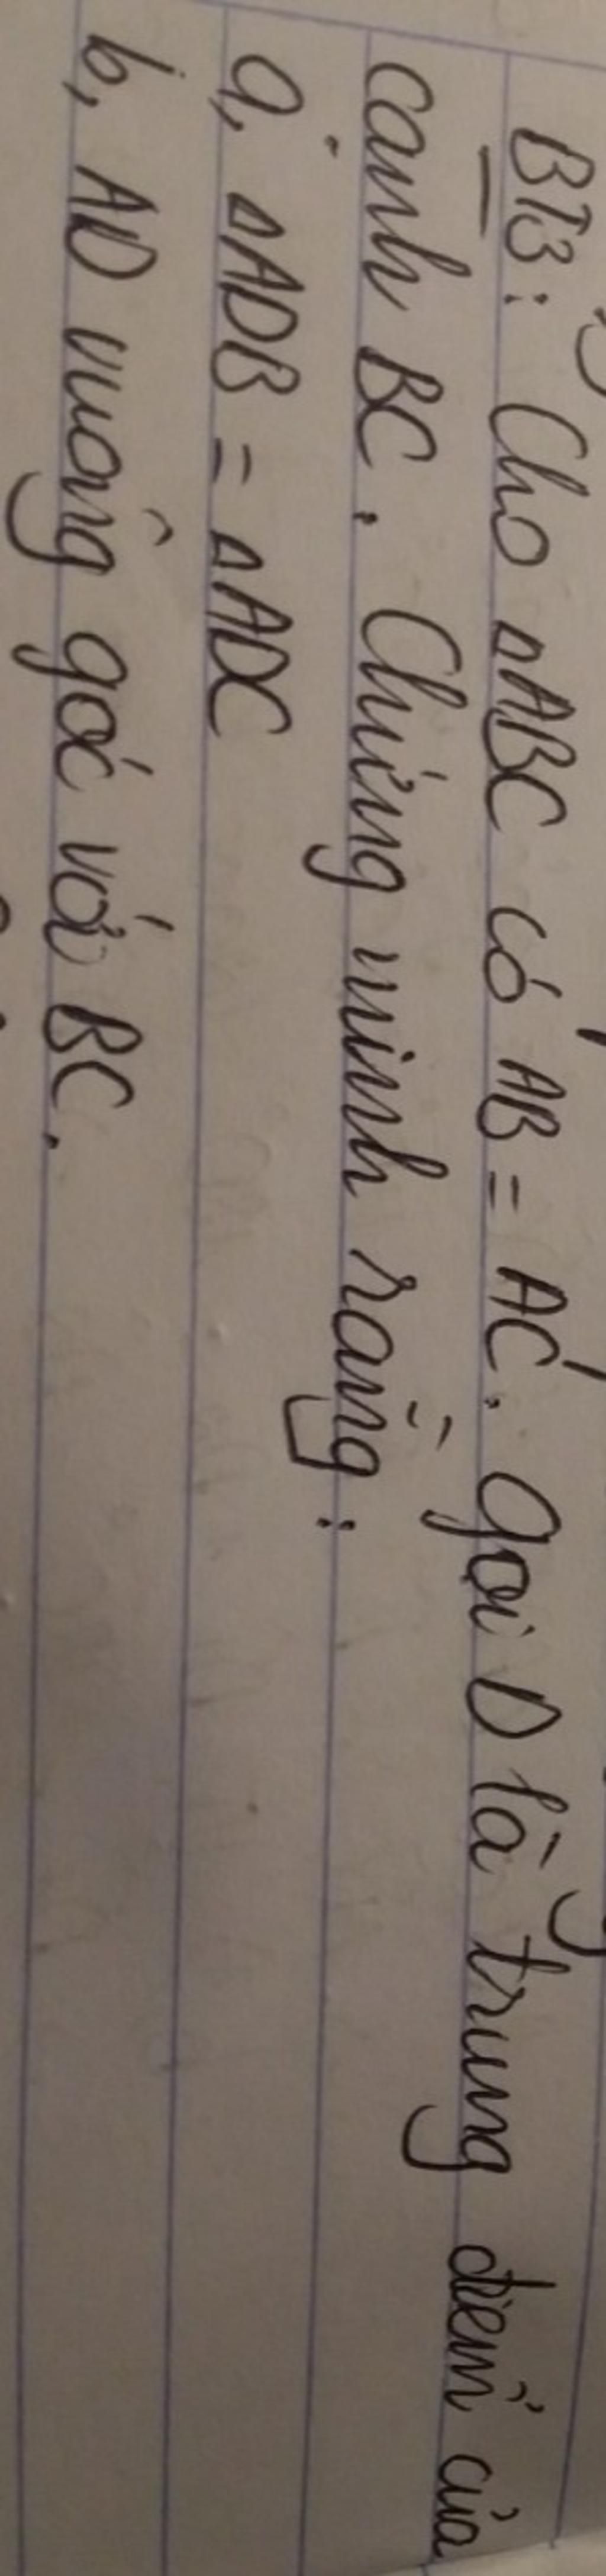 BT3: Cho ΔABC có AB = AC. Gọi D là trung điểm của
cạnh BC. Chứng minh rằng:
a, ΔADB = ΔADC
b, AD vuông góc với BC.